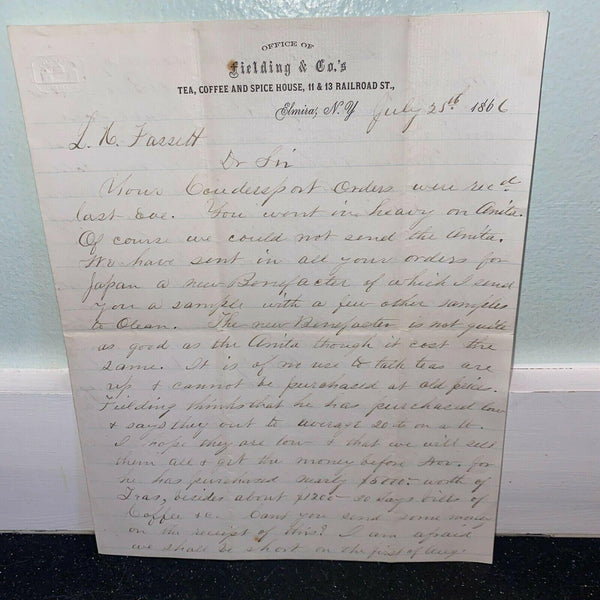 OFFICE OF
Fielding & Co.'s
TEA, COFFEE AND SPICE HOUSE, 11 & 13 RAILROAD ST.,
Elmira, N. Y July 25th 1866
Fassett
Dr Sir
Your Coudersport Orders were recd
last Eve. You went in heavy on Anita.
Of course we could not send the Anita.
We have sent in all your orders for
Japan a new Benefacter of which I send
you a sample with a few other samples
to Olean. The new Benefacter is not quite
as good as the Anita though it cost the
same. It is of no use to talk teas are
up & cannot be purchased at old prices.
Fielding thinks that he has purchased low
& says they out to average 20 to on a lb.
I hope they are low & that we will sell
them all & get the money before Nov. for
he has purchased nearly $5000 - worth of
Teas, besides about $1200 - 30 days bills of
Coffee &c. Cant you send some money
on the receipt of this? I am afraid
we shall be short on the first of Aug.